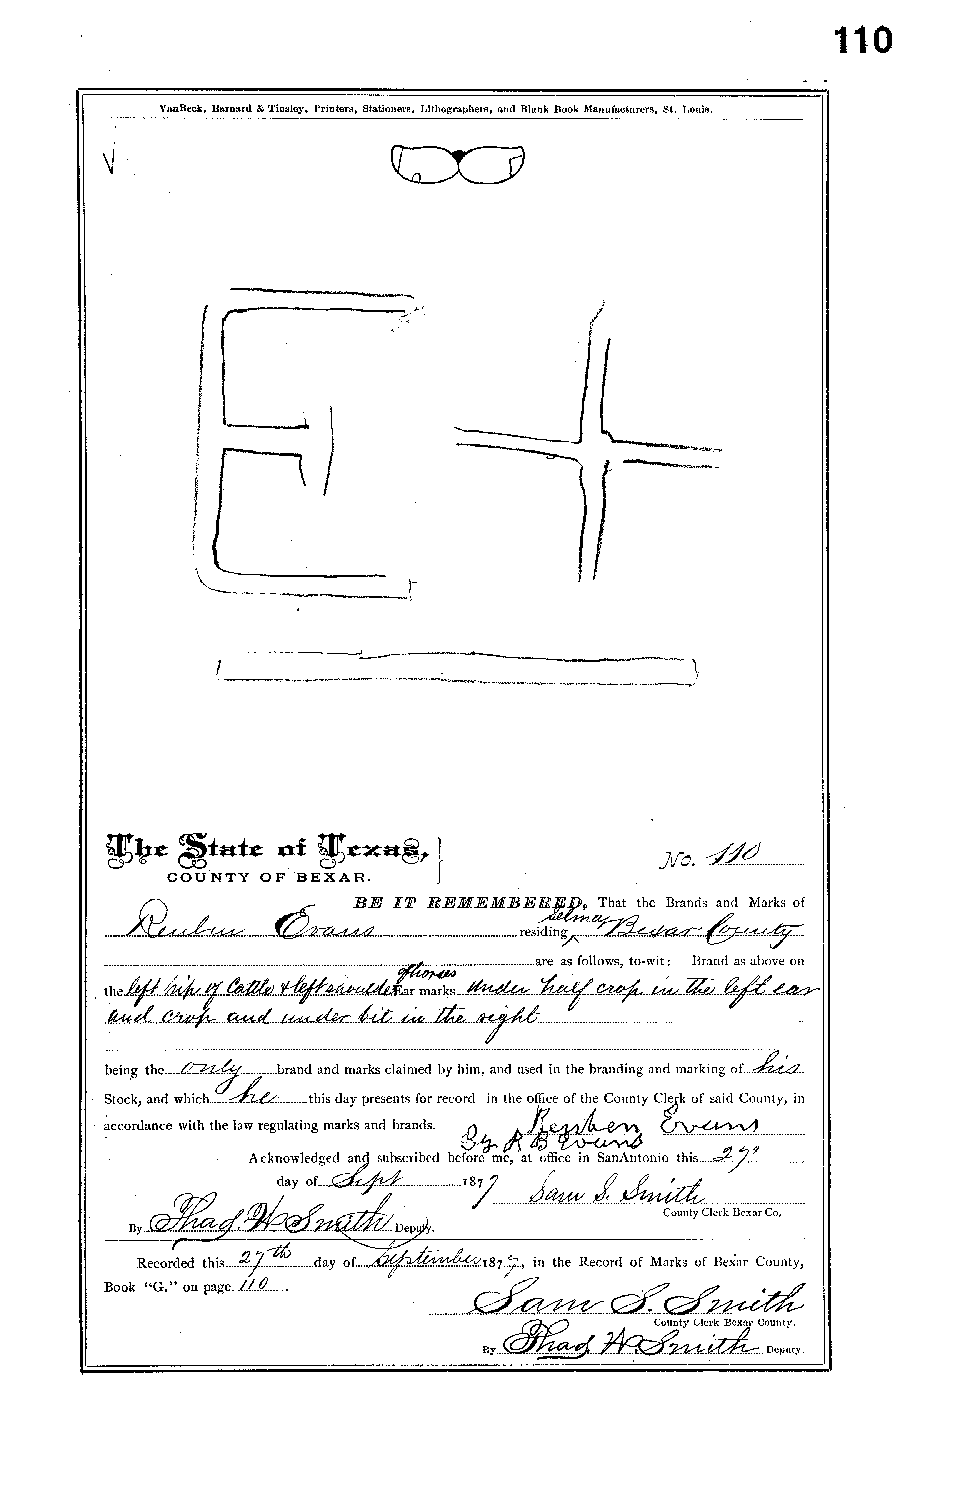 110
VanBeck, Barnard & Tinsley, Printers, Stationers, Lithographers, and Blank Book Manufacturers, St. Louis.
The State of Texas,
COUNTY OF BEXAR.
No. 110
BE IT REMEMBERED, That the Brands and Marks of
Reuben Evans residing Selma Bexar County
are as follows, to-wit: Brand as above on
the left hip of Cattle & left shoulder of horses Ear marks under half crop in the left ear
and crop and under bit in the right
being the only brand and marks claimed by him, and used in the branding and marking of his
Stock, and which he this day presents for record in the office of the County Clerk of said County, in
accordance with the law regulating marks and brands. Reuben Evans
By R B Evans
Acknowledged and subscribed before me, at office in SanAntonio this 27
day of Sept 1877 Sam S. Smith
County Clerk Bexar Co.
By Thad. W. Smith Deputy.
Recorded this 27th day of September 1877, in the Record of Marks of Bexar County,
Book "G," on page 110.
Sam S. Smith
County Clerk Bexar County.
By Thad W Smith Deputy.